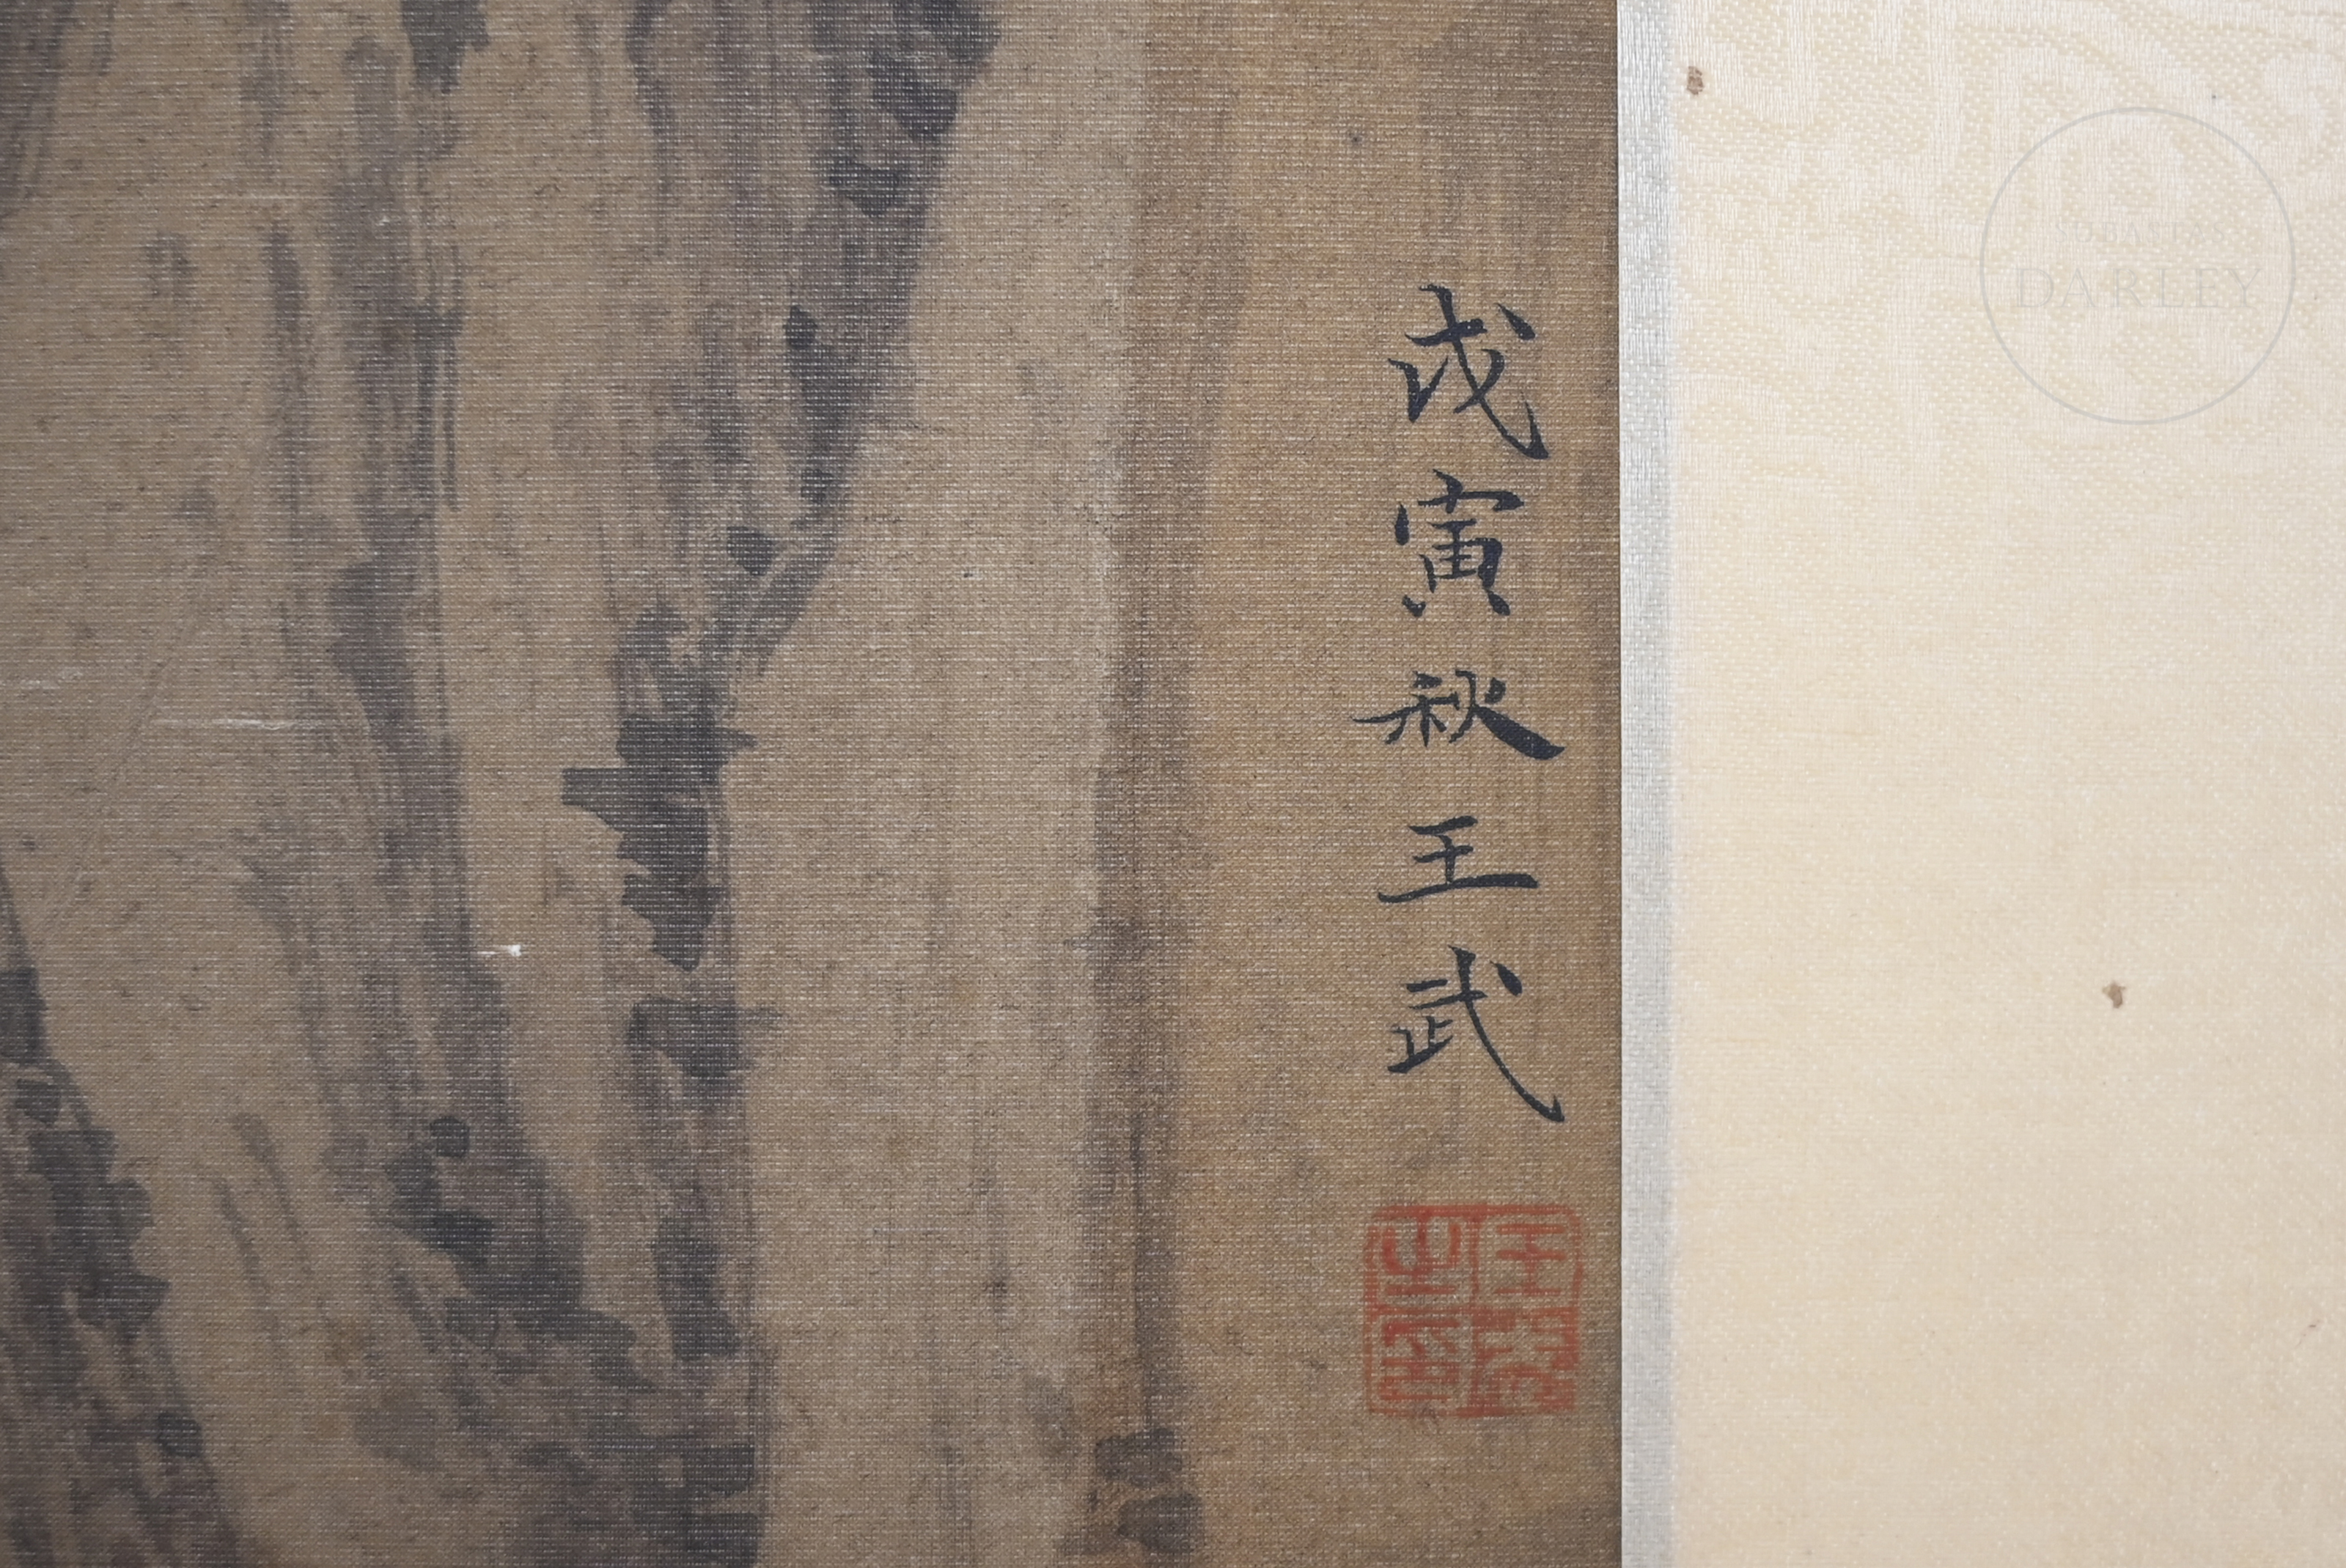 戊寅秋王武
SUBASTAS
DARLEY